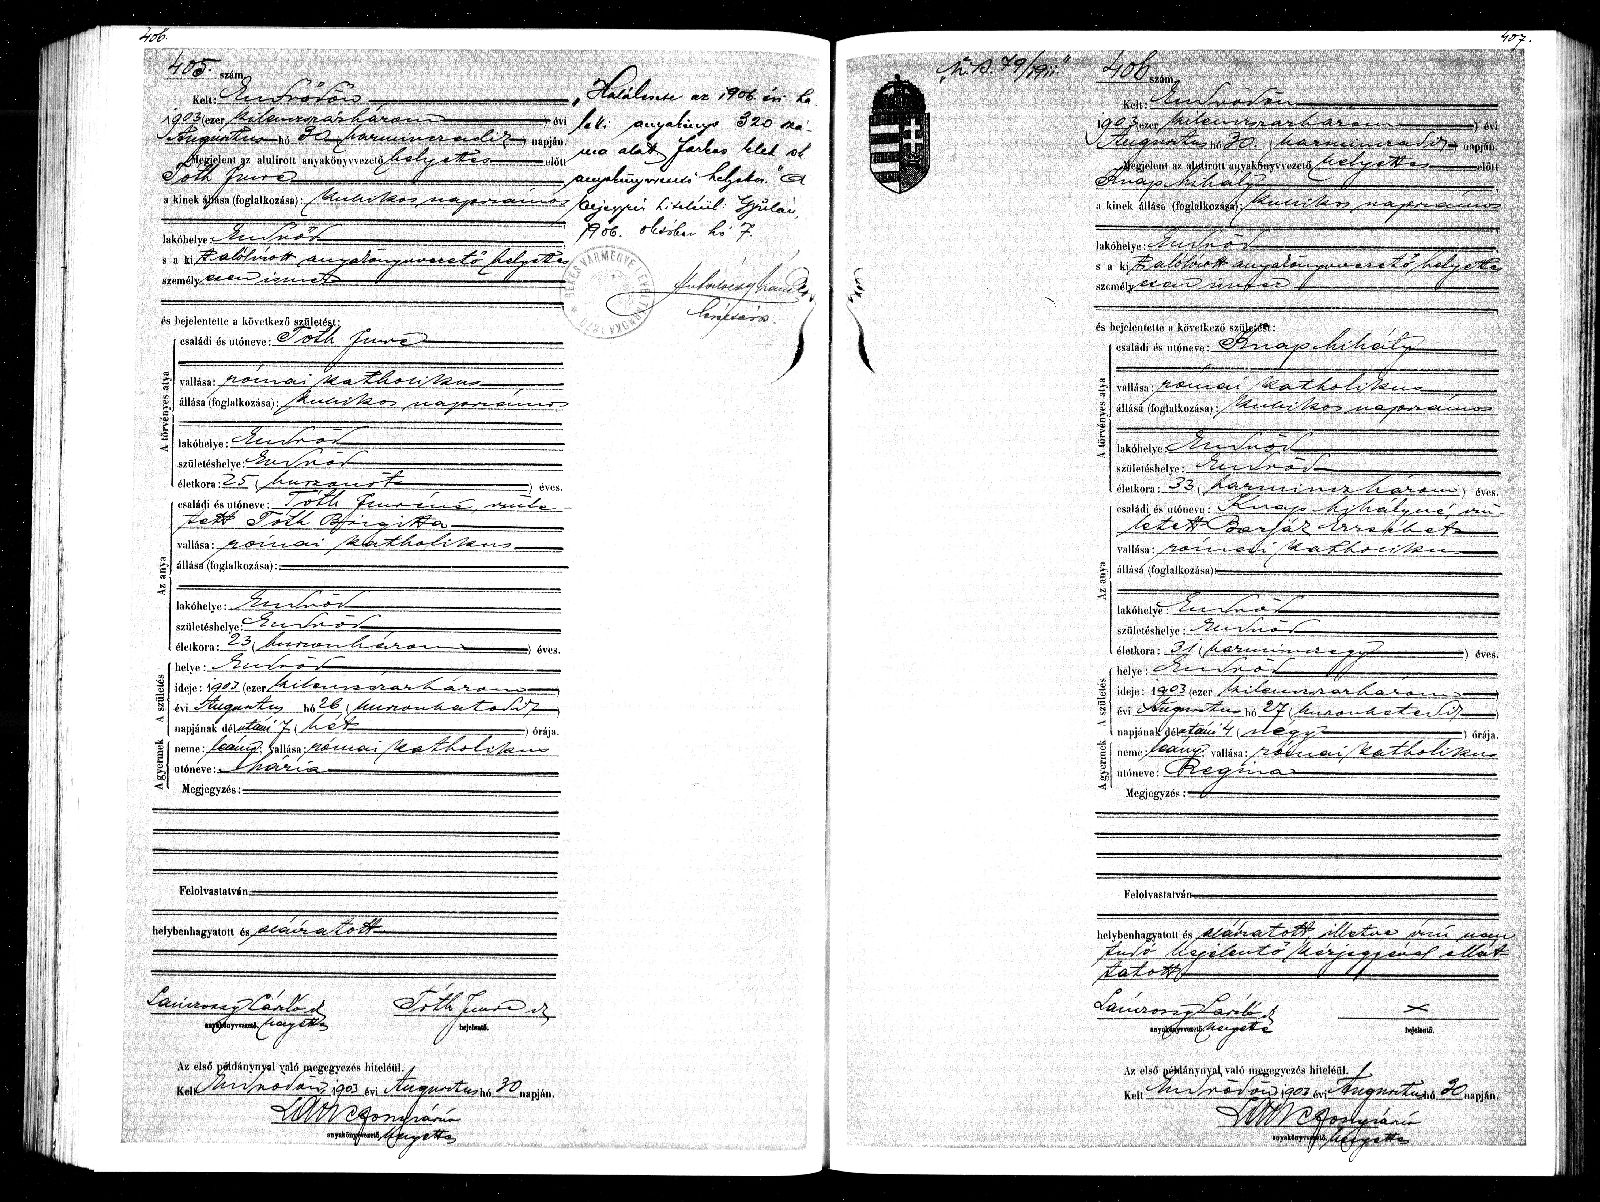 406.
405. szám
Kelt: Endrődön
1903 (ezer kilenczszázhárom) évi
Augusztus hó 30 (harminczadik) napján.
Megjelent az alulirott anyakönyvvezető helyettes előtt
Tóth Imre
a kinek állása (foglalkozása): kubikos napszámos
lakóhelye: Endrőd
s a ki t alólirott anyakönyvvezető helyettes
személyesen ismer
és bejelentette a következő születést:
A törvényes atya
családi és utóneve: Tóth Imre
vallása: római katholikus
állása (foglalkozása): kubikos napszámos
lakóhelye: Endrőd
születéshelye: Endrőd
életkora: 25 (huszonöt) éves.
Az anya
családi és utóneve: Tóth Imréné, szüle-
tett Tóth Brigitta
vallása: római katholikus
állása (foglalkozása):
lakóhelye: Endrőd
születéshelye: Endrőd
életkora: 23 (huszonhárom) éves.
A gyermek A születés
helye: Endrőd
ideje: 1903 (ezer kilenczszázhárom)
évi Augusztus hó 26 (huszonhatodik)
napjának délutáni 7 (hét) órája.
neme: leány vallása: római katholikus
utóneve: Mária
Megjegyzés:
Felolvastatván,
helybenhagyatott és aláiratott
anyakönyvvezető helyettes
Tóth Imre
bejelentő.
Az első példánynyal való megegyezés hiteléül.
Kelt Endrődön, 1903 évi Augusztus hó 30 napján.
anyakönyvvezető helyettes
"Halálesete az 1906. évi ha-
láli anyakönyv 320 szá-
ma alatt. Farkas
anyakönyvvezető helyettes." A
bejegyzés hiteléül: Gyulán,
1906. október hó 7.
BÉKÉS VÁRMEGYE LEVÉLTÁRNOKA
407.
406 szám
Kelt: Endrődön
1903 (ezer kilenczszázhárom) évi
Augusztus hó 30. (harminczadik) napján.
Megjelent az alulirott anyakönyvvezető helyettes előtt
Knap Mihály
a kinek állása (foglalkozása): kubikos napszámos
lakóhelye: Endrőd
s a ki t alólirott anyakönyvvezető helyettes
személyesen ismer
és bejelentette a következő születést:
A törvényes atya
családi és utóneve: Knap Mihály
vallása: római katholikus
állása (foglalkozása): kubikos napszámos
lakóhelye: Endrőd
születéshelye: Endrőd
életkora: 33 (harminczhárom) éves.
Az anya
családi és utóneve: Knap Mihályné, szü-
letett Erzsébet
vallása: római katholikus
állása (foglalkozása):
lakóhelye: Endrőd
születéshelye: Endrőd
életkora: 31 (harminczegy) éves.
A gyermek A születés
helye: Endrőd
ideje: 1903 (ezer kilenczszázhárom)
évi Augusztus hó 27 (huszonhetedik)
napjának délutáni 4 (négy) órája.
neme: leány vallása: római katholikus
utóneve: Regina
Megjegyzés:
Felolvastatván,
helybenhagyatott és aláiratott illetve irni nem
tudó bejelentő kézjegyével ellát-
tatott
anyakönyvvezető helyettes
x
bejelentő.
Az első példánynyal való megegyezés hiteléül.
Kelt Endrődön 1903 évi Augusztus hó 30 napján.
anyakönyvvezető helyettes